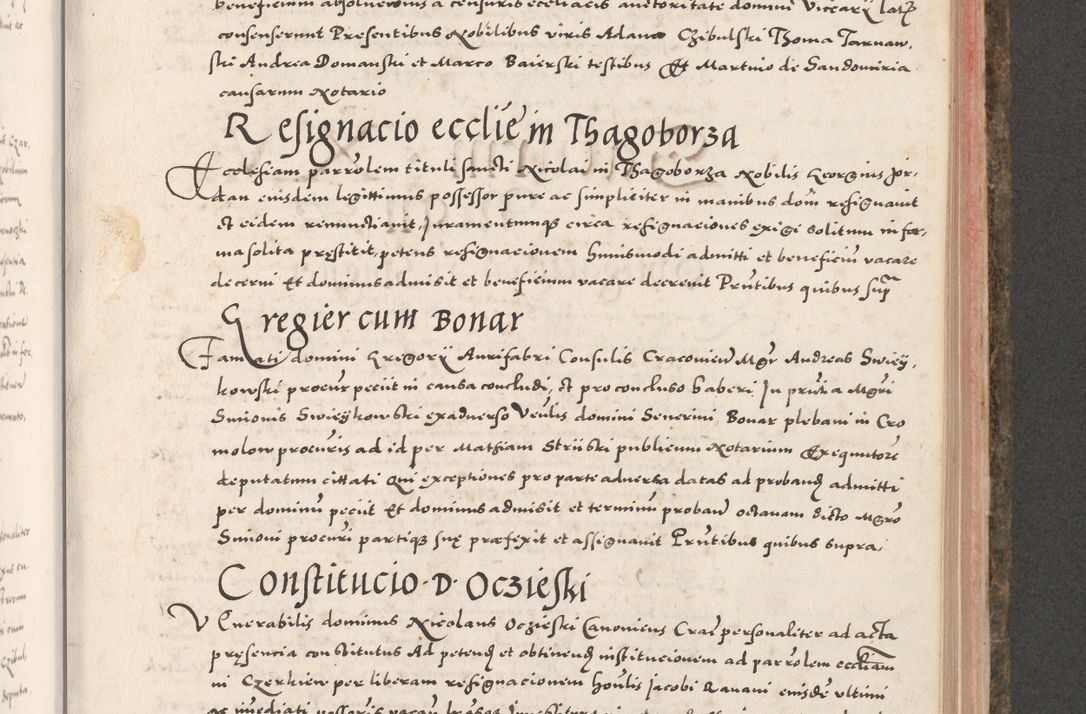 beneficium absoluerunt a censuris eccliacis auctoritate domini Vicearÿ
consenserunt Presentibus Nobilibus viris Adamo Czibulski Thoma Tarnaw,
ski Andrea Domanski et Marco Baierski testibus Et Martino de Sandomiria
causarum Notario
Resignacio ecclie in Thagoborza
Ecclesiam parrolem tituli sancti Nicolai in Thagoborza Nobilis Georgius Jor,
dan eiusdem legittimus possessor pure ac simpliciter in manibus dom resignauit
et eidem renunctiauit, Juramentumq circa resignaciones exigi solitum in for,
ma solita pręstitit, petens resignacionem huiusmodi admitti et beneficiu vacare
decerni Et dominus admisit et beneficium vacare decreuit Prntibus quibus supra
Gregier cum Bonar
Famati domini Gregorÿ Aurifabri Consulis Cracovien Mgr Andreas Swieÿ,
kowski procur peciit in causa concludi, et pro concluso haberi In pruia Mgri
Simonis Swieÿkowski ex aduerso Venlis domini Seuerini Bonar plebani in Cro
molow procuris ad id per Mathiam Struski publicum Notarium Exequutore
deputatum cittati Qui exceptiones pro parte aduersa datas ad proband admitti
per dominu peciit Et dominus admisit et terminu proban octauam dicto Mgro
Simoni procuri partiq suę præfexit et assignauit Prntibus quibus supra,
Constitucio D Oczieski
Venerabilis dominus Nicolaus Oczieski Canonicus Crac personaliter ad acta
pręsencia constitutus Ad petend et obtinend institucionem ad parrolem eccliam
in Czerkiew per liberam resignacionem honlis Jacobi Bavani eiusde vltimi
ac imediati